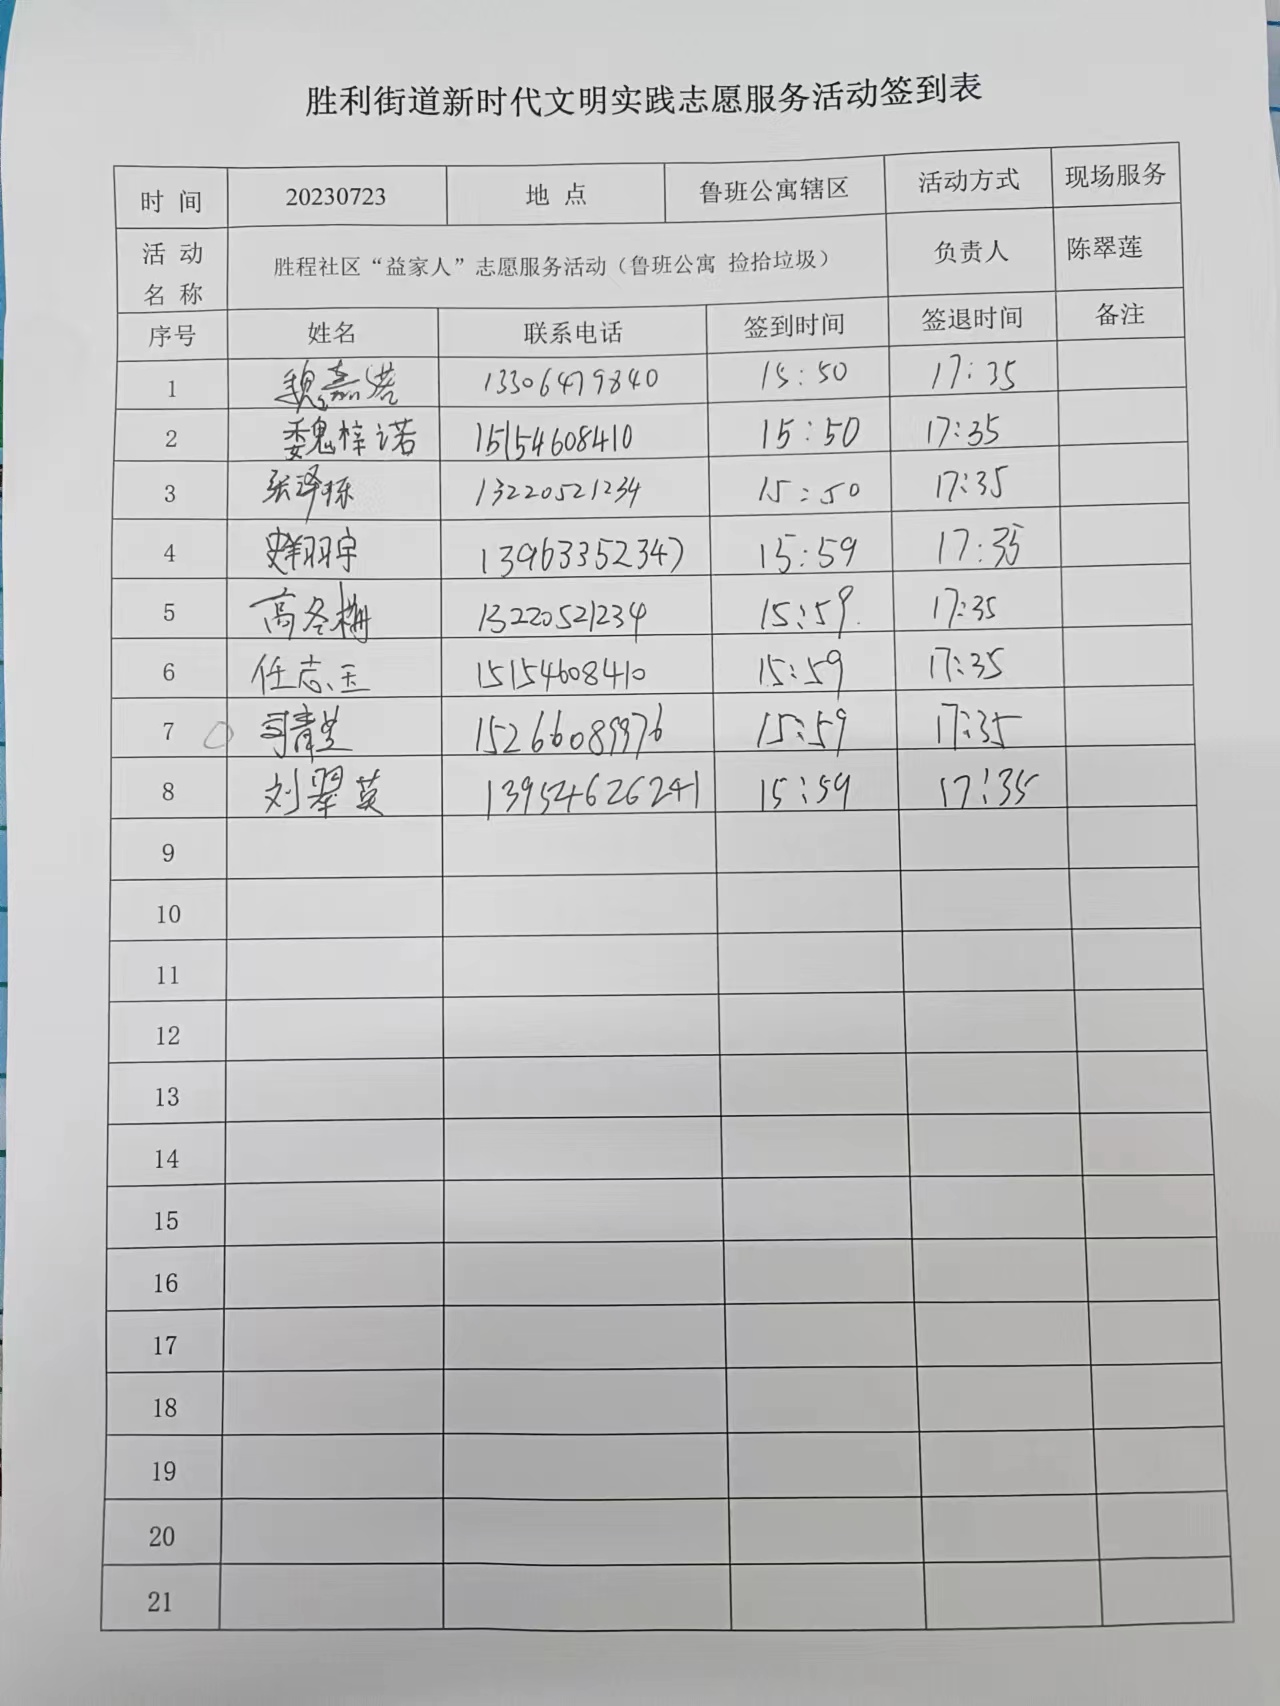 胜利街道新时代文明实践志愿服务活动签到表
时 间 20230723 地 点 鲁班公寓辖区 活动方式 现场服务
活 动 名 称 胜程社区“益家人”志愿服务活动（鲁班公寓 捡拾垃圾） 负责人 陈翠莲
序号 姓名 联系电话 签到时间 签退时间 备注
1 魏嘉诺 13306479840 15:50 17:35
2 魏梓诺 15154608410 15:50 17:35
3 张泽栋 13220521234 15:50 17:35
4 羽宇 13963352347 15:59 17:35
5 高冬梅 13220521234 15:59 17:35
6 任志玉 15154608410 15:59 17:35
7 15266089976 15:59 17:35
8 刘翠英 13954626241 15:59 17:35
9
10
11
12
13
14
15
16
17
18
19
20
21